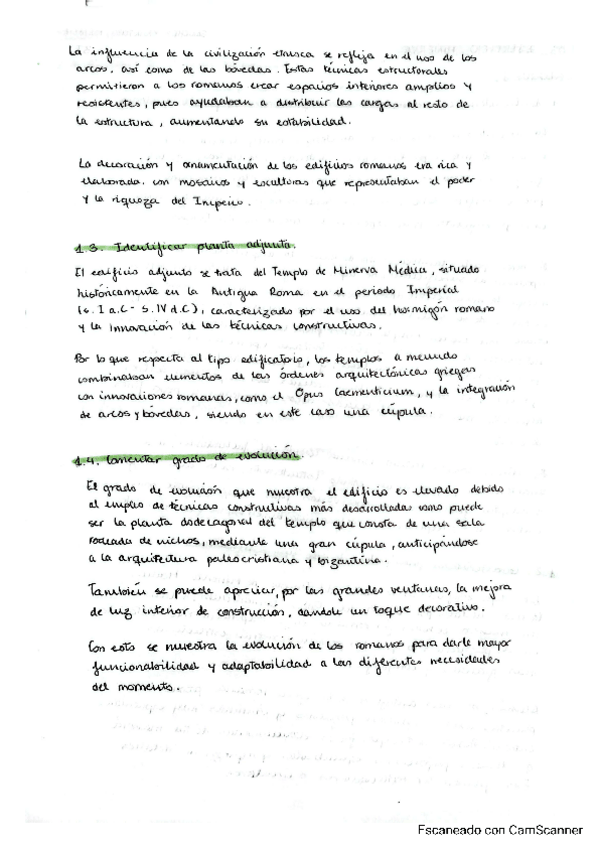 La influencia de la civilización etrusca se refleja en el uso de los
arcos, así como de las bóvedas. Estas técnicas estructurales
permitieron a los romanos crear espacios interiores amplios y
resistentes, pues ayudaban a distribuir las cargas al resto de
la estructura, aumentando su estabilidad.
La decoración y ornamentación de los edificios romanos era rica y
elaborada, con mosaicos y esculturas que representaban el poder
y la riqueza del Imperio.
1.3. Identificar planta adjunta.
El edificio adjunto se trata del Templo de Minerva Médica, situado
históricamente en la Antigua Roma en el periodo Imperial
(s. I a.C - s. IV d.C), caracterizado por el uso del hormigón romano
y la innovación de las técnicas constructivas.
Por lo que respecta al tipo edificatorio, los templos a menudo
combinaban elementos de las órdenes arquitectónicas griegas
con innovaciones romanas, como el Opus Caementicium, y la integración
de arcos y bóvedas, siendo en este caso una cúpula.
1.4. Comentar grado de evolución.
El grado de evolución que muestra el edificio es elevado debido
al empleo de técnicas constructivas más desarrolladas como puede
ser la planta dodecagonal del templo que consta de una sala
rodeada de nichos, mediante una gran cúpula, anticipándose
a la arquitectura paleocristiana y bizantina.
También se puede apreciar, por las grandes ventanas, la mejora
de luz interior de construcción, dándole un toque decorativo.
Con esto se muestra la evolución de los romanos para darle mayor
funcionabilidad y adaptabilidad a las diferentes necesidades
del momento.
Escaneado con CamScanner